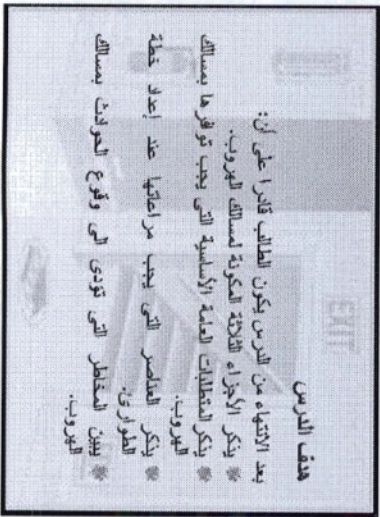 هدف الدرس
بعد الانتهاء من الدرس يكون الطالب قادرا على أن:
* يذكر الأجزاء الثلاثة المكونة لمسالك الهروب.
* يذكر المتطلبات العامة الأساسية التى يجب توافرها بمسالك
الهروب.
* يذكر العناصر التى يجب مراعاتها عند إعداد خطة
الطوارئ.
* يبين المخاطر التى تؤدى الى وقوع الحوادث بمسالك
الهروب.
EXIT